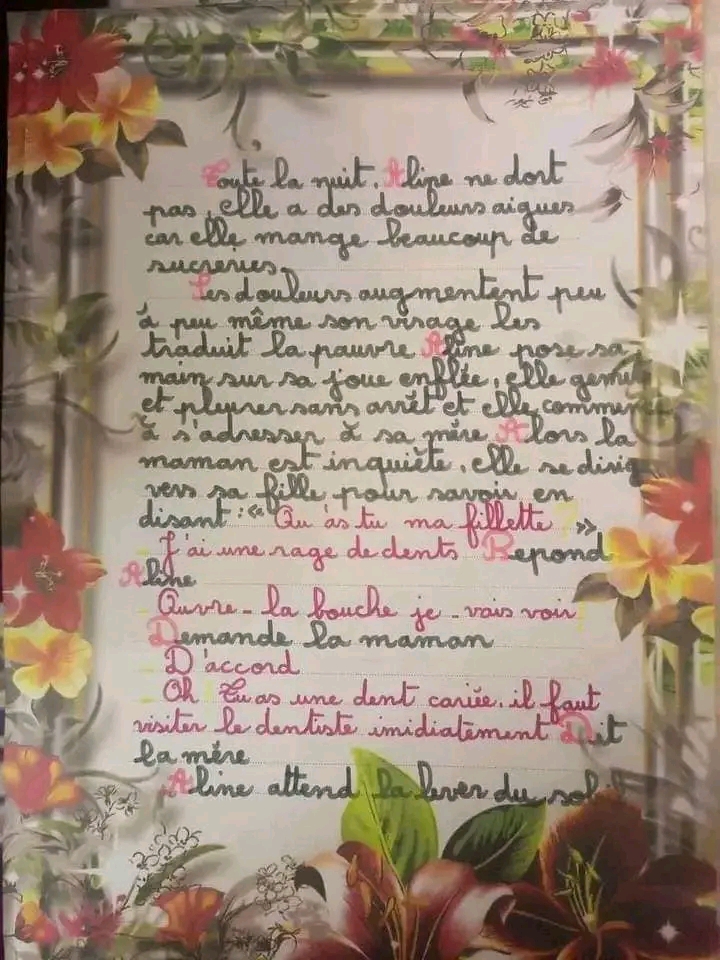 Toute la nuit, Aline ne dort
pas, elle a des douleurs aigues
car elle mange beaucoup de
sucreries.
Les douleurs augmentent peu
à peu même son visage les
traduit la pauvre Aline pose sa
main sur sa joue enflée, elle gemit
et pleurer sans arrêt et elle commence
à s'adresser à sa mère Alors la
maman est inquiète, elle se dirig
vers sa fille pour savoir en
disant : « Qu'as tu ma fillette »
J'ai une rage de dents Repond
Aline
Ouvre-la bouche je-vais voir
Demande la maman
D'accord
Oh Tu as une dent cariée, il faut
visiter le dentiste imidiatement Dit
la mère
Aline attend la lever du sol